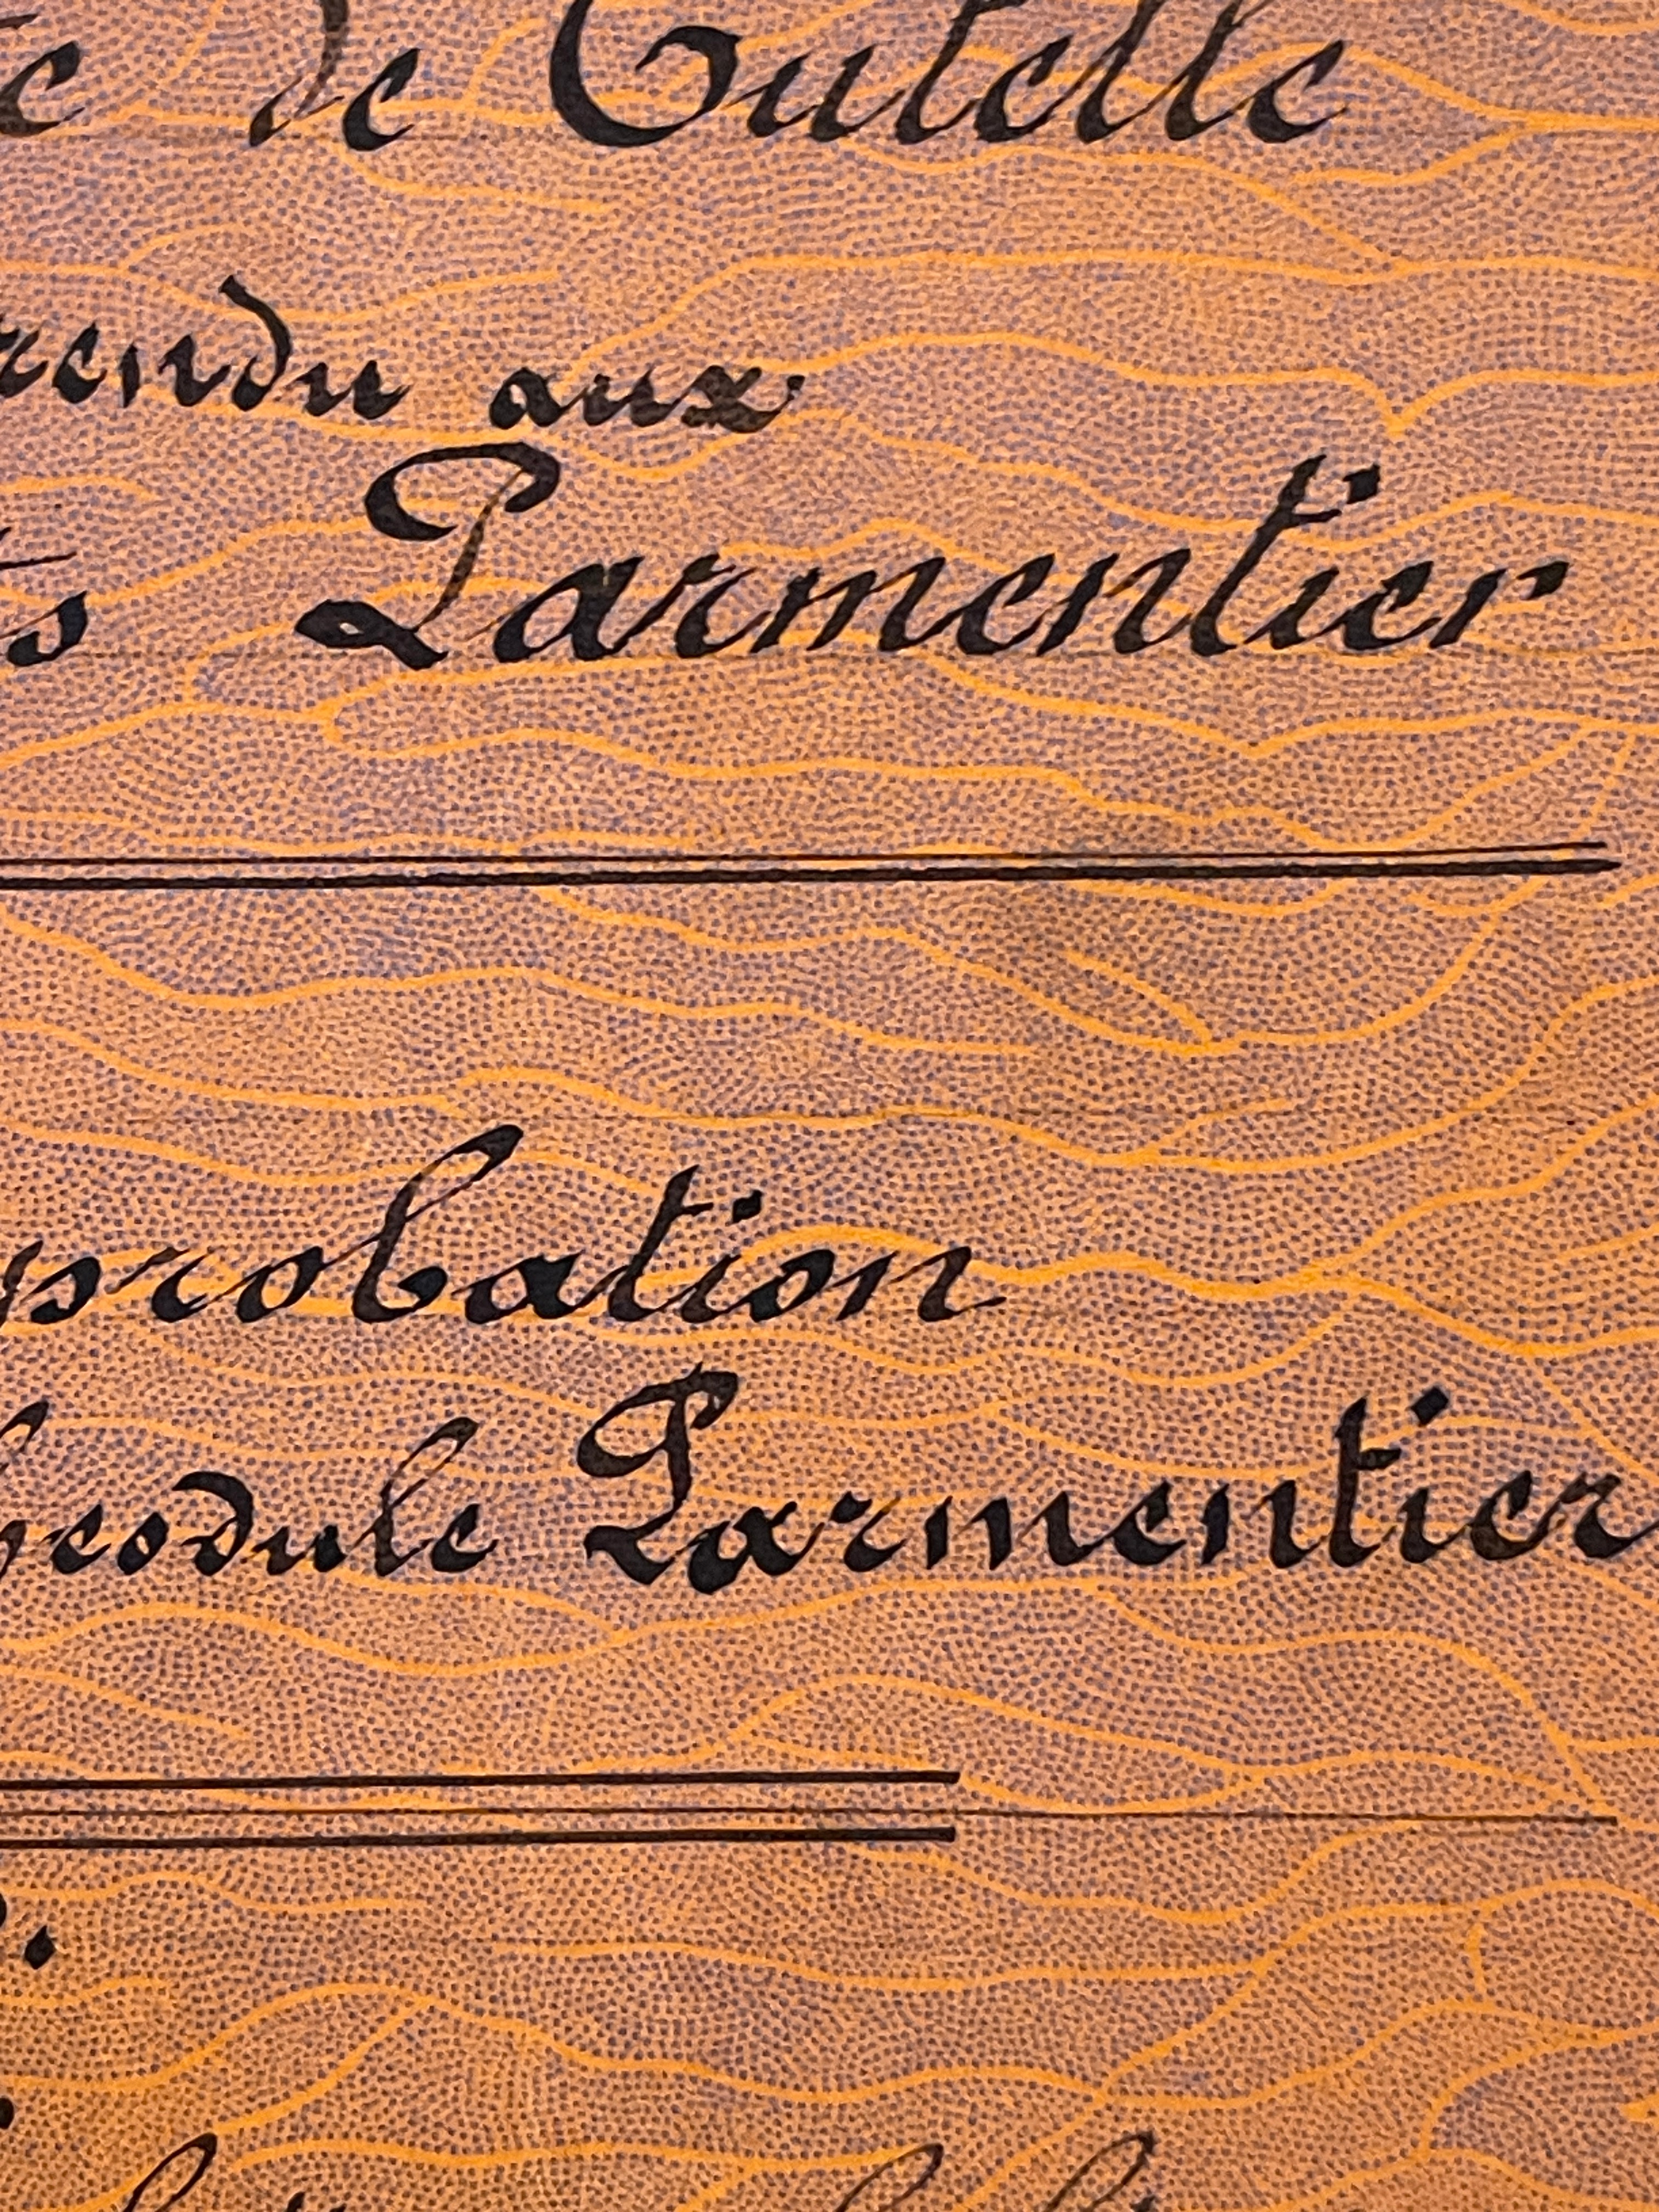 te de Tutelle
rendu aux
ts Parmentier
probation
heodule Parmentier